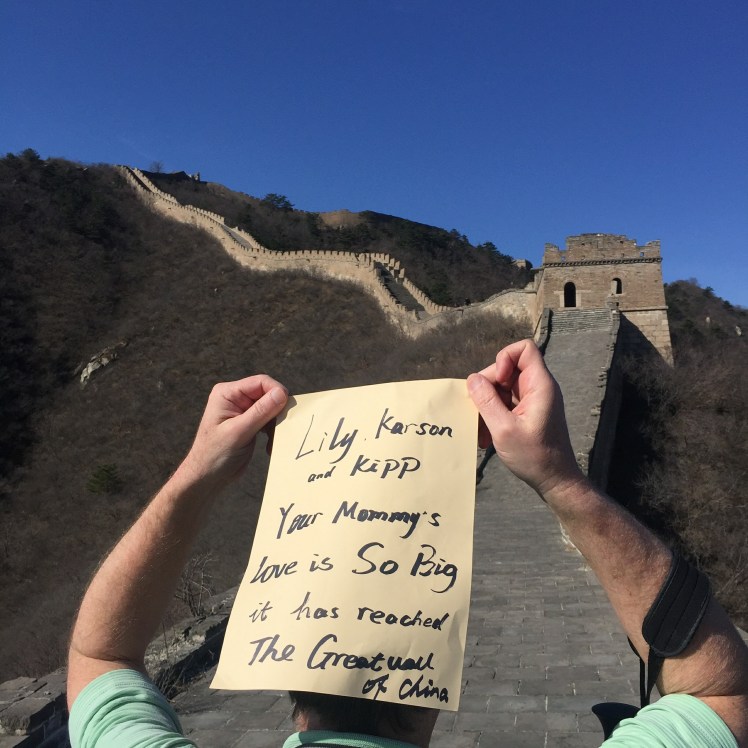 Lily, Karson
and Kipp
Your Mommy's
Love is So Big
it has reached
The Great wall
of China